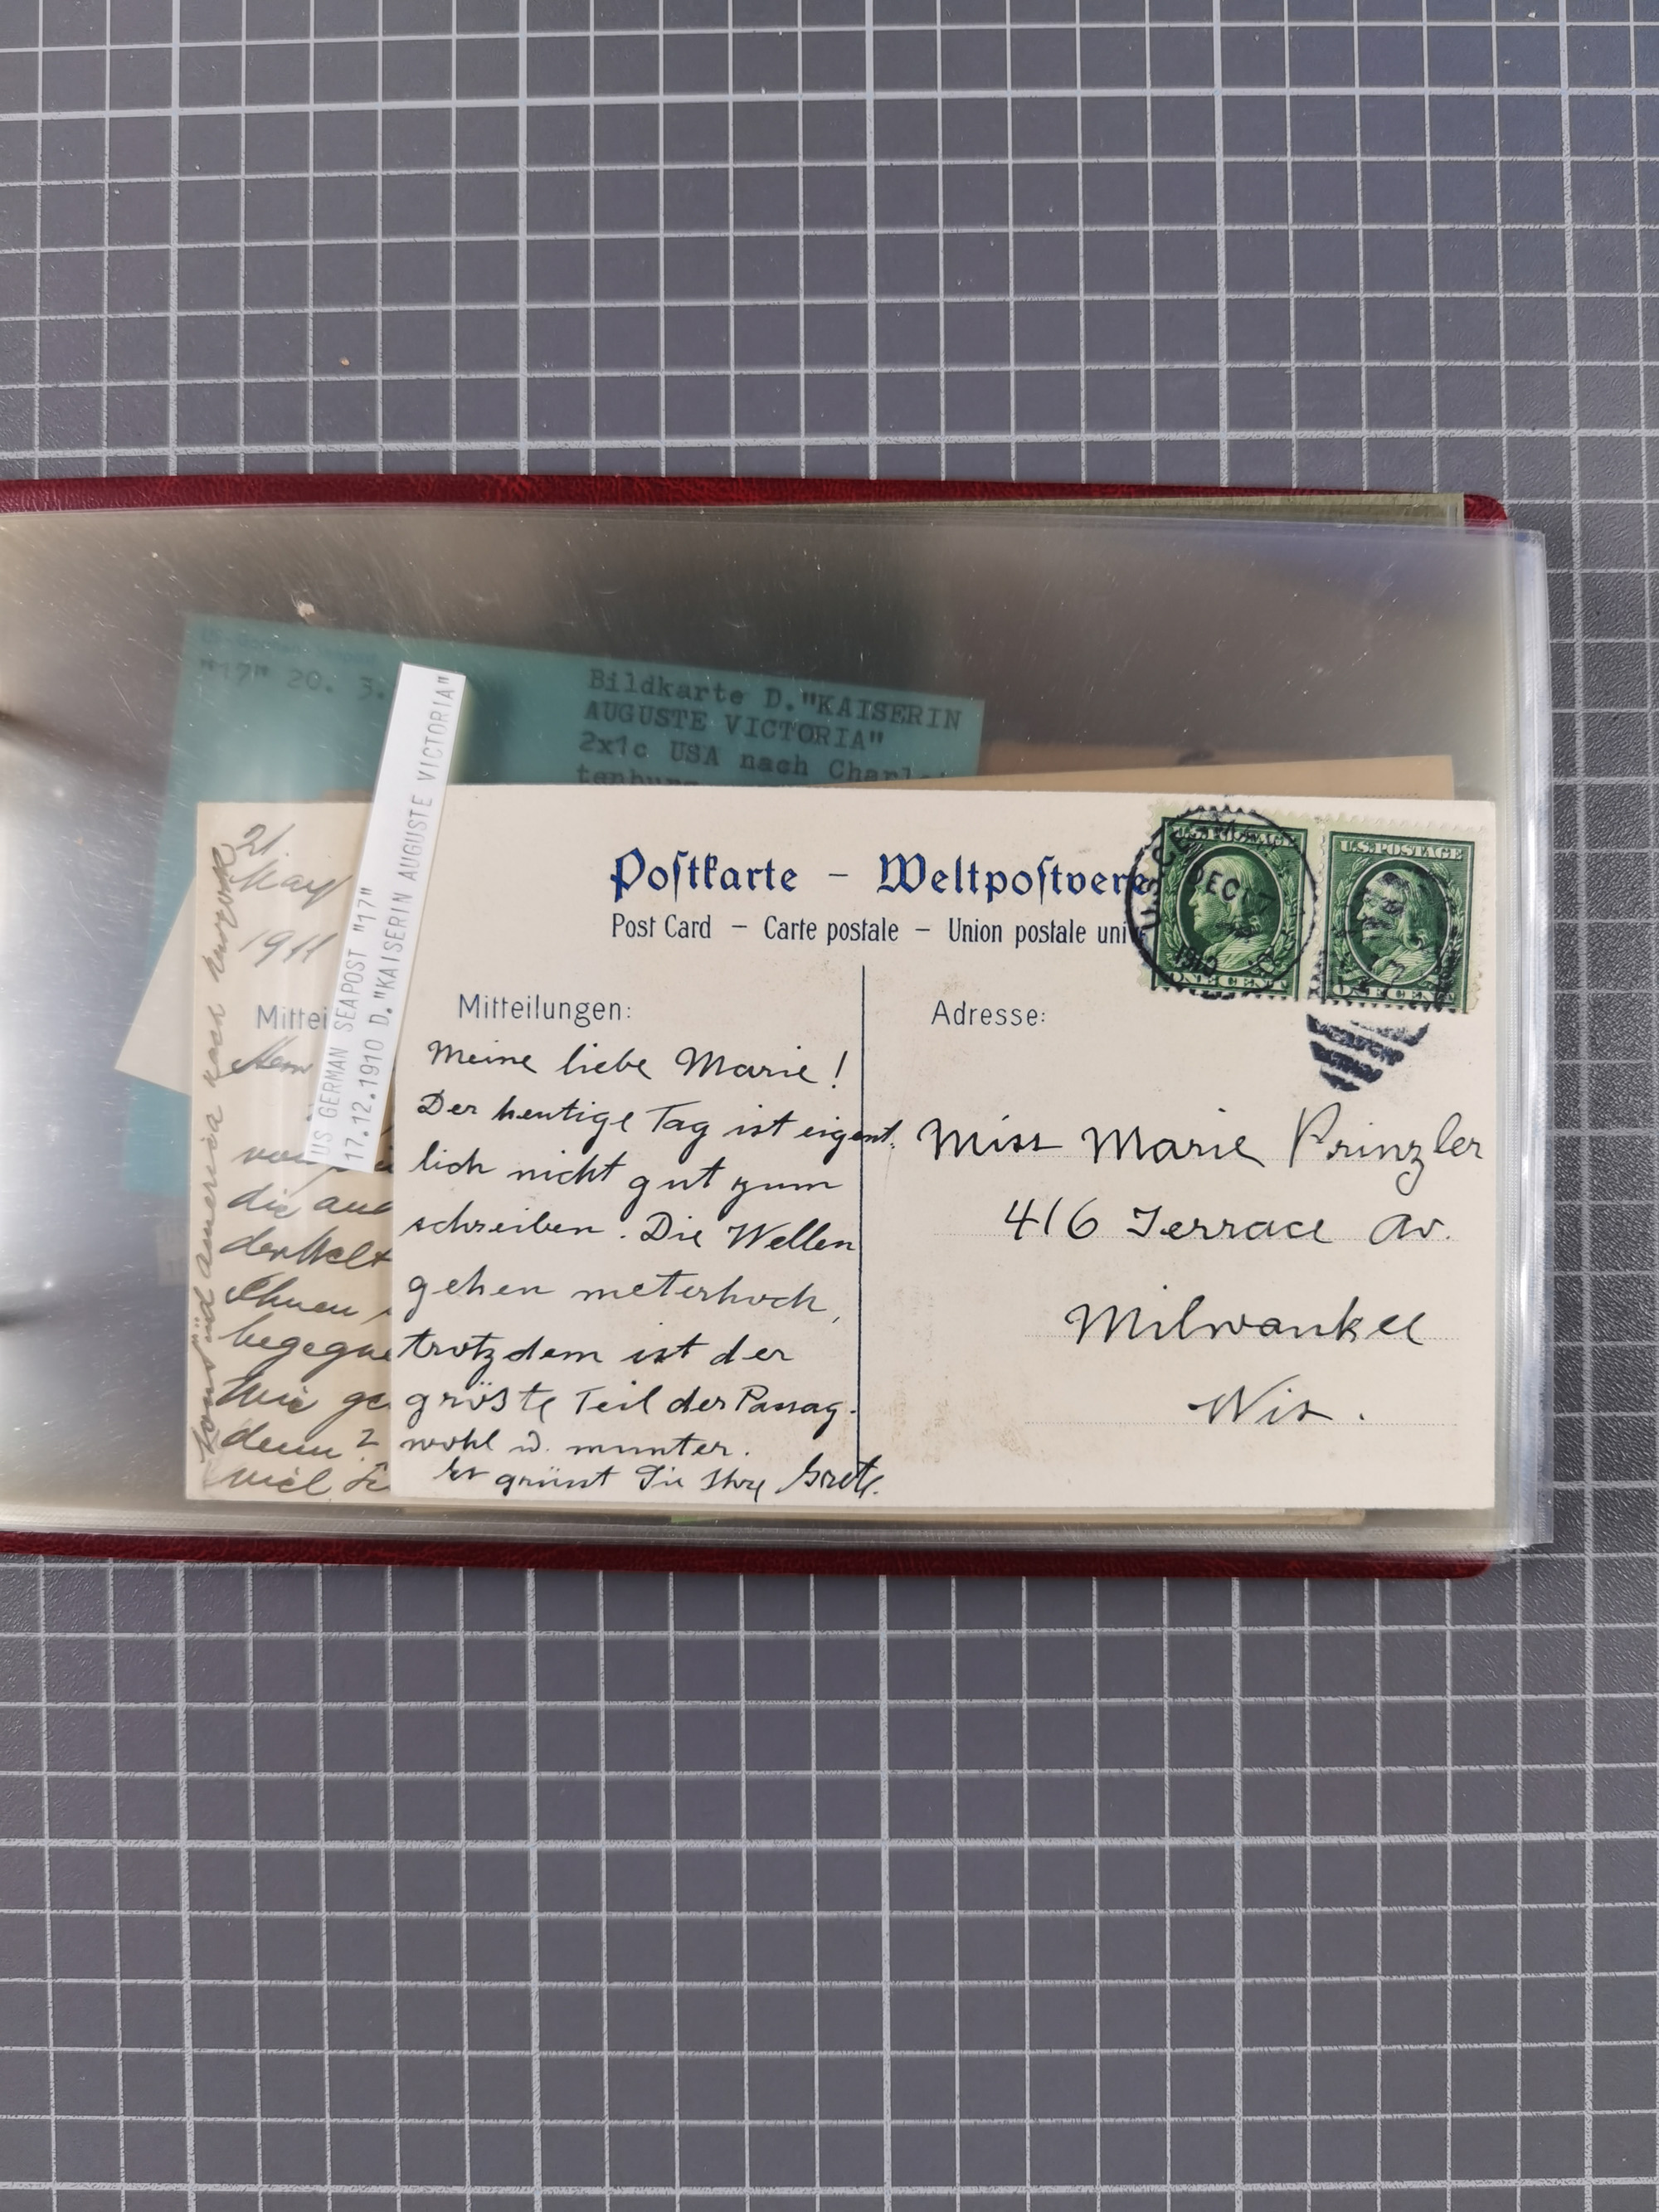 "17" 20. 3.
Bildkarte D."KAISERIN
AUGUSTE VICTORIA"
2x1c USA nach Charlot
tenburg
US GERMAN SEAPOST "17"
17.12.1910 D."KAISERIN AUGUSTE VICTORIA"
21.
May
1911
Mittei
die
der Welt
Ihnen
begegne
Wie ge
denn?
viel
nach america nach
Postkarte – Weltpostvere
Post Card – Carte postale – Union postale uni
U.S. POSTAGE
ONE CENT
U.S. POSTAGE
ONE CENT
DEC 17
1910
Mitteilungen:
Meine liebe Marie!
Der heutige Tag ist eigent-
lich nicht gut zum
schreiben. Die Wellen
gehen meterhoch,
trotzdem ist der
gröste Teil der Passag.
wohl u. munter.
Es grüsst Sie Ihre Grete.
Adresse:
Miss Marie Prinzler
416 Terrace Av.
Milwaukee
Wis.